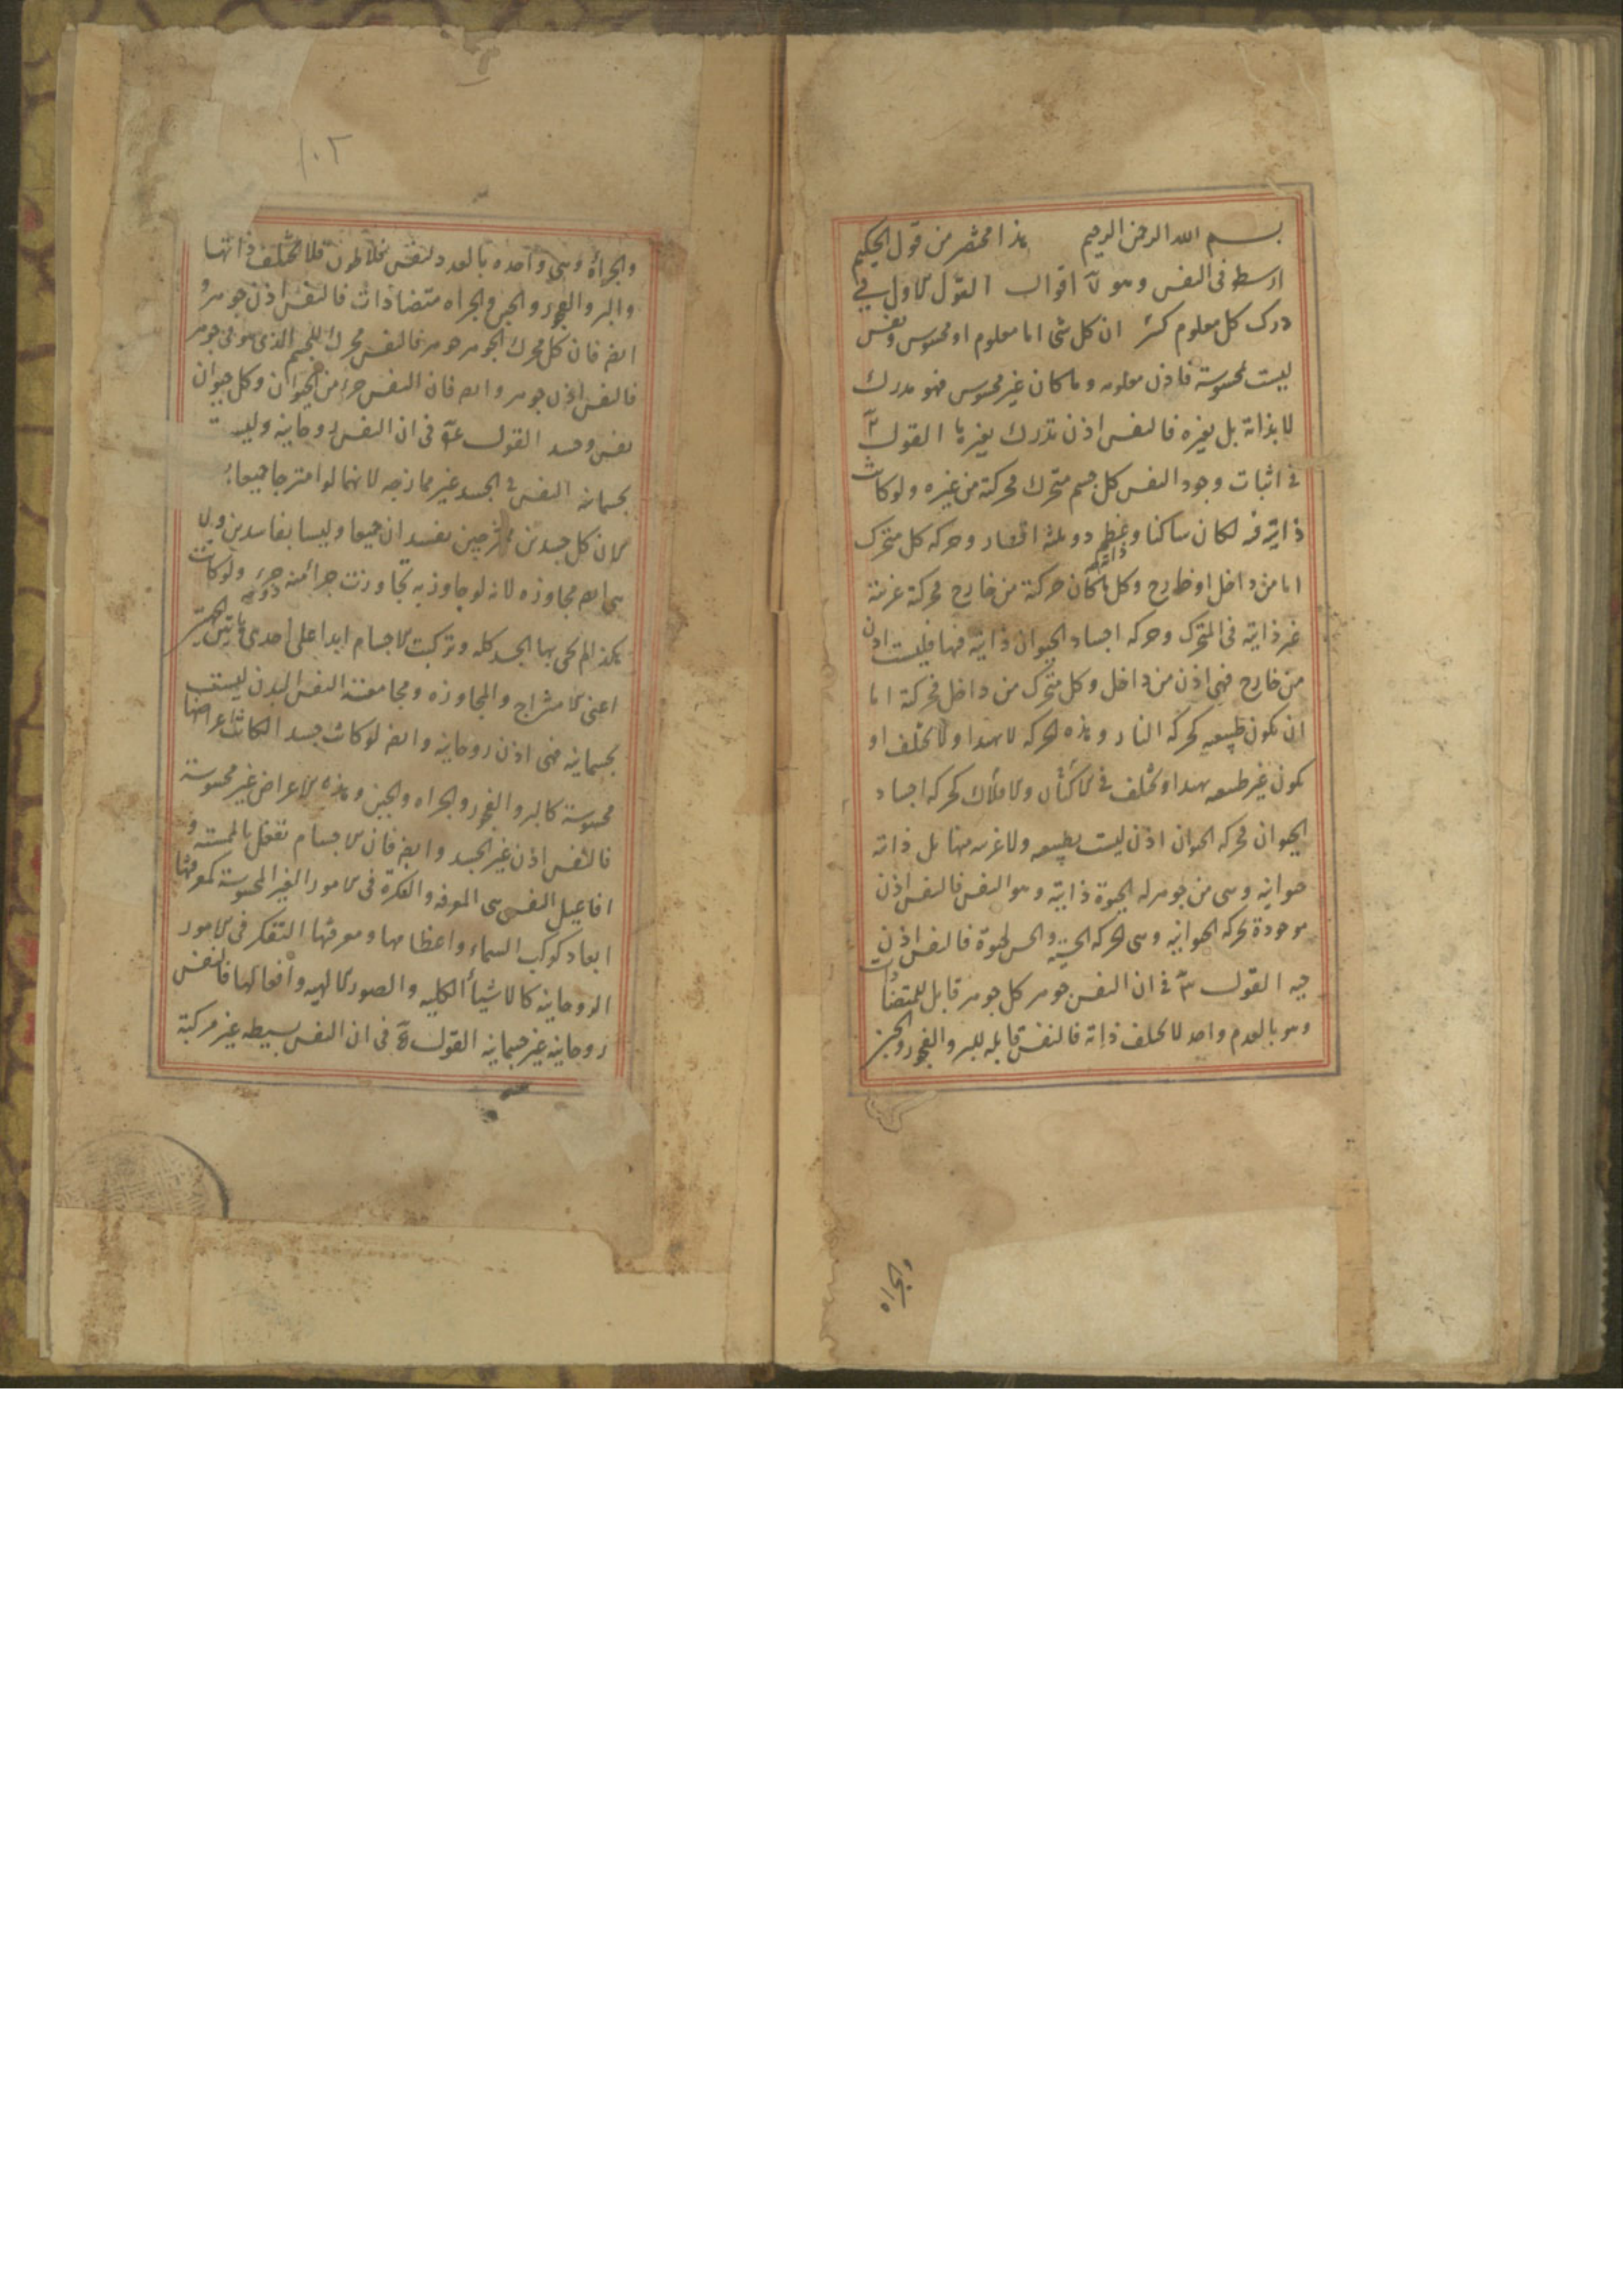 بسم الله الرحمن الرحيم هذا مختصر من قول الحكيم
ارسطو في النفس وهو ٧ اقوال القول الاول في
درك كل معلوم كثر ان كل شئ اما معلوم او محسوس ونفس
ليست محسوسة فاذن معلومه وما كان غير محسوس فهو مدرك
لا بذاته بل بغيره فالنفس اذن تدرك بغيرها القول ٢
في اثبات وجود النفس كل جسم متحرك فحركته من غيره ولو كانت
ذاتية فيه لكان ساكنا وعظم ذو ثلثة اقطار وحركه كل متحرك
ذاته
اما من داخل او خارج وكل ما كان حركته من خارج فحركته عرضة
غير ذاتيه في المتحرك وحركه اجساد الحيوان ذاتية فيها فليست اذن
من خارج فهي اذن من داخل وكل متحرك من داخل فحركته اما
ان يكون طبيعيه كحركه النار وهذه الحركه لا تهدا ولا تختلف او
يكون غير طبيعيه تهدا وتختلف في الاكنان والاملاك كحركه اجساد
الحيوان فحركه الحيوان اذن ليست بطبيعيه ولا غريبه منها بل ذاته
حيوانيه وهي من جوهر له الحيوة ذاتية وهو النفس فالنفس اذن
موجودة بحركه الحيوانيه وهي الحركه الحسيه والحس لحيوة فالنفس اذن
حيه القول ٣ في ان النفس جوهر كل جوهر قابل للمتضادات
وهو بالعدم واحد لا تختلف ذاته فالنفس قابله للبر والفجور والجبن
والجراه
١٠٢
والجراة وهي واحده بالعدد لنفس فلاطون فلا تختلف ذاتها
والبر والفجور والجبن والجراه متضادات فالنفس اذن جوهر و
ايضا فان كل محرك الجوهر جوهر فالنفس محرك للجسم الذي هو في جوهر
فالنفس اذن جوهر وايضا فان النفس جزء من الحيوان وكل حيوان
نفس وجسد القول ٤ في ان النفس روحانيه وليست
بجسمانيه النفس في الجسد غير ممازجه لانهما لو امتزجا جميعا
لان كل جسدين ممتزجين يفسدان جميعا وليسا بفاسدين ولا
هي ايضا مجاوزه لانه لو جاوز به تجاوزت جزا منه دون جزء ولو كانت
هكذا لم يحى بها الجسد كله وتركبت الاجسام ابدا على احدى هاتين الجهتين
اعني الامتزاج والمجاوزه ومجامعة النفس البدن ليست
بجسمانيه فهي اذن روحانيه وايضا لو كانت جسدا لكانت اعراضها
محسوسة كالبر والفجور والجراه والجبن وهذه الاعراض غير محسوسة
فالنفس اذن غير الجسد وايضا فان الاجسام تفعل بالمماسه و
افاعيل النفس هي المعرفه والفكرة في الامور الغير المحسوسة كمعرفتها
ابعاد كواكب السماء واعظامها ومعرفتها التفكر في الامور
الروحانيه كالاشياء الكليه والصور الالهيه وافعالها فالنفس
روحانيه غير جسمانيه القول ٥ في ان النفس بسيطه غير مركبة